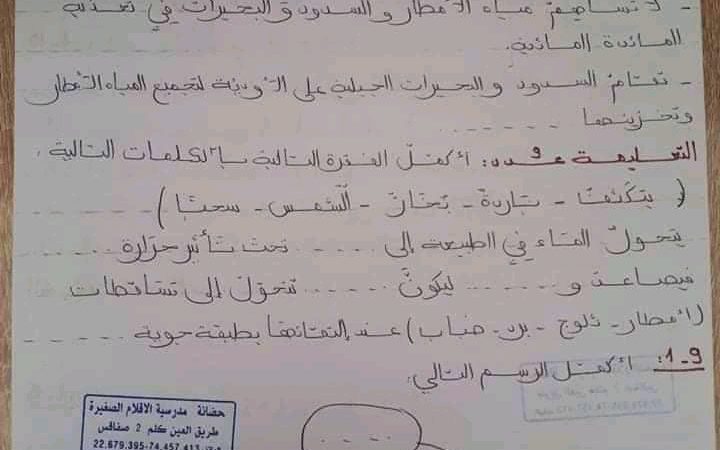 - لا تساهم مياه الأمطار و السدود و البحيرات في تغذية
المائدة المائية.
- تقام السدود و البحيرات الجبلية على الأودية لتجميع المياه الأمطار
وتخزينها ......
التعليمة عدد 9: أكمل الفقرة التالية بالكلمات التالية.
( يتكثف - باردة - بخار - الشمس - سحبا )
يتحول الماء في الطبيعة إلى ..... تحت تأثير حرارة ......
فيصاعد و ...... ليكون ...... تتحول إلى تساقطات
(أمطار - ثلوج - برد - ضباب) عند التقائها بطبقة جوية ......
9-1: أكمل الرسم التالي.
حضانة مدرسية الاقلام الصغيرة
طريق العين كلم 2 صفاقس
22.679.395-74.457.413